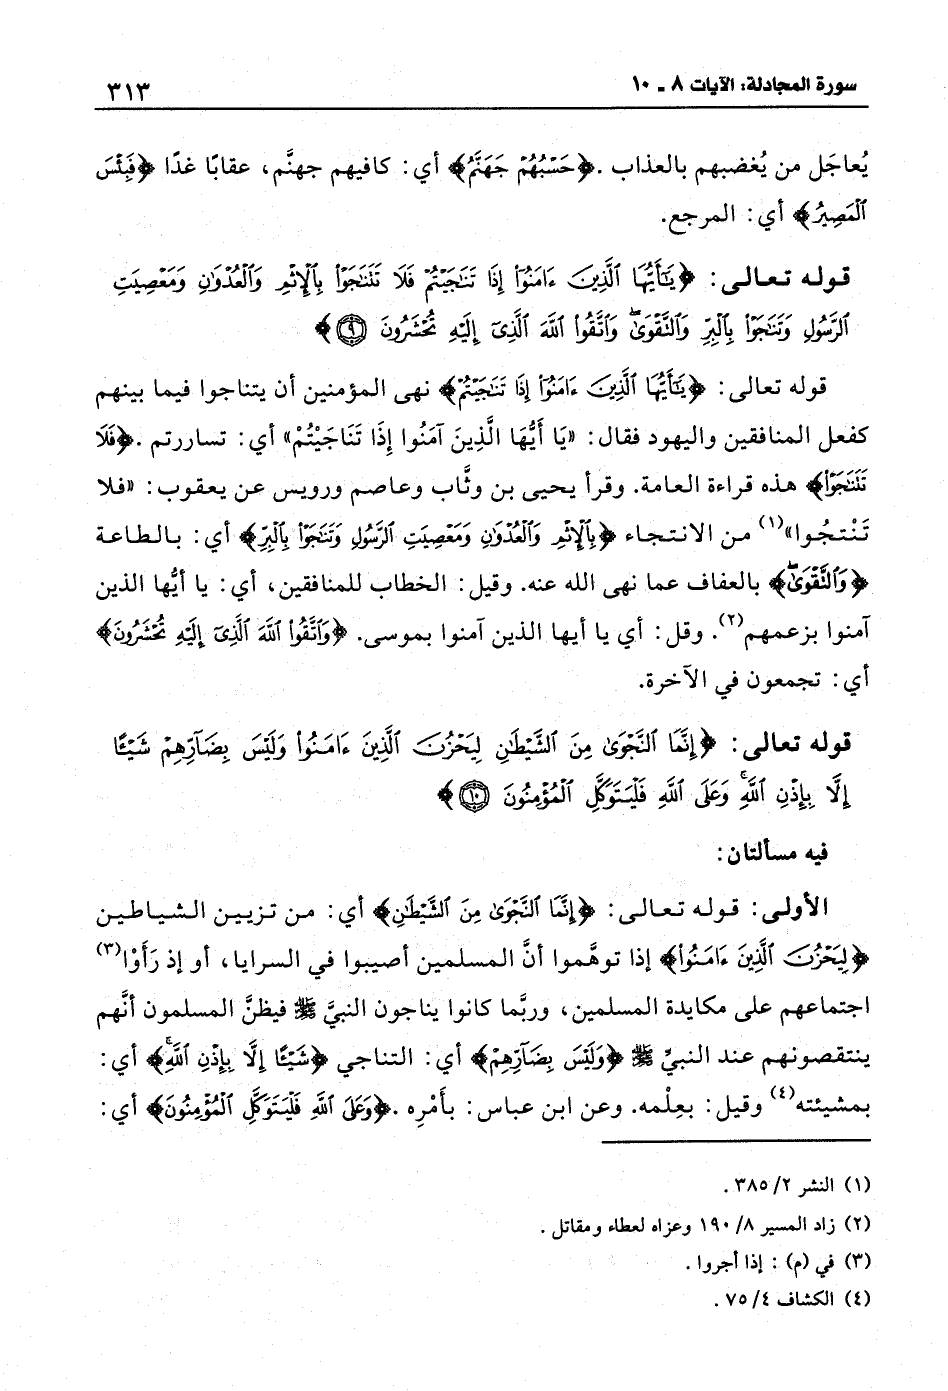 سورة المجادلة: الآيات ٨ ـ ١٠ ٣١٣
يُعاجَل من يُغضبهم بالعذاب .﴿حَسْبُهُمْ جَهَنَّمُ﴾ أي: كافيهم جهنَّم، عقابًا غدًا ﴿فَبِئْسَ
الْمَصِيرُ﴾ أي: المرجع.
قوله تعالى: ﴿يَٰٓأَيُّهَا ٱلَّذِينَ ءَامَنُوٓا۟ إِذَا تَنَٰجَيْتُمْ فَلَا تَتَنَٰجَوْا۟ بِٱلْإِثْمِ وَٱلْعُدْوَٰنِ وَمَعْصِيَتِ
ٱلرَّسُولِ وَتَنَٰجَوْا۟ بِٱلْبِرِّ وَٱلتَّقْوَىٰ وَٱتَّقُوا۟ ٱللَّهَ ٱلَّذِىٓ إِلَيْهِ تُحْشَرُونَ ٩﴾
قوله تعالى: ﴿يَٰٓأَيُّهَا ٱلَّذِينَ ءَامَنُوٓا۟ إِذَا تَنَٰجَيْتُمْ﴾ نهى المؤمنين أن يتناجوا فيما بينهم
كفعل المنافقين واليهود فقال: «يَا أَيُّهَا الَّذِينَ آمَنُوا إِذَا تَنَاجَيْتُمْ» أي: تساررتم .﴿فَلَا
تَتَنَٰجَوْا۟﴾ هذه قراءة العامة. وقرأ يحيى بن وثَّاب وعاصم ورويس عن يعقوب: «فلا
تَنْتجُوا»(١) من الانتجاء ﴿بِٱلْإِثْمِ وَٱلْعُدْوَٰنِ وَمَعْصِيَتِ ٱلرَّسُولِ وَتَنَٰجَوْا۟ بِٱلْبِرِّ﴾ أي: بالطاعة
﴿وَٱلتَّقْوَىٰ﴾ بالعفاف عما نهى الله عنه. وقيل: الخطاب للمنافقين، أي: يا أيُّها الذين
آمنوا بزعمهم(٢). وقل: أي يا أيها الذين آمنوا بموسى. ﴿وَٱتَّقُوا۟ ٱللَّهَ ٱلَّذِىٓ إِلَيْهِ تُحْشَرُونَ﴾
أي: تجمعون في الآخرة.
قوله تعالى: ﴿إِنَّمَا ٱلنَّجْوَىٰ مِنَ ٱلشَّيْطَٰنِ لِيَحْزُنَ ٱلَّذِينَ ءَامَنُوا۟ وَلَيْسَ بِضَآرِّهِمْ شَيْـًٔا
إِلَّا بِإِذْنِ ٱللَّهِ ۚ وَعَلَى ٱللَّهِ فَلْيَتَوَكَّلِ ٱلْمُؤْمِنُونَ ١٠﴾
فيه مسألتان:
الأولى: قوله تعالى: ﴿إِنَّمَا ٱلنَّجْوَىٰ مِنَ ٱلشَّيْطَٰنِ﴾ أي: من تزيين الشياطين
﴿لِيَحْزُنَ ٱلَّذِينَ ءَامَنُوا۟﴾ إذا توهَّموا أنَّ المسلمين أصيبوا في السرايا، أو إذ رَأَوْا(٣)
اجتماعهم على مكايدة المسلمين، وربَّما كانوا يناجون النبيَّ ﷺ فيظنَّ المسلمون أنَّهم
ينتقصونهم عند النبيِّ ﷺ ﴿وَلَيْسَ بِضَآرِّهِمْ﴾ أي: التناجي ﴿شَيْـًٔا إِلَّا بِإِذْنِ ٱللَّهِ ۚ﴾ أي:
بمشيئته(٤) وقيل: بعِلْمه. وعن ابن عباس: بأمْرِه .﴿وَعَلَى ٱللَّهِ فَلْيَتَوَكَّلِ ٱلْمُؤْمِنُونَ﴾ أي:
(١) النشر ٢/ ٣٨٥ .
(٢) زاد المسير ٨/ ١٩٠ وعزاه لعطاء ومقاتل .
(٣) في (م) : إذا أجروا .
(٤) الكشاف ٤/ ٧٥ .